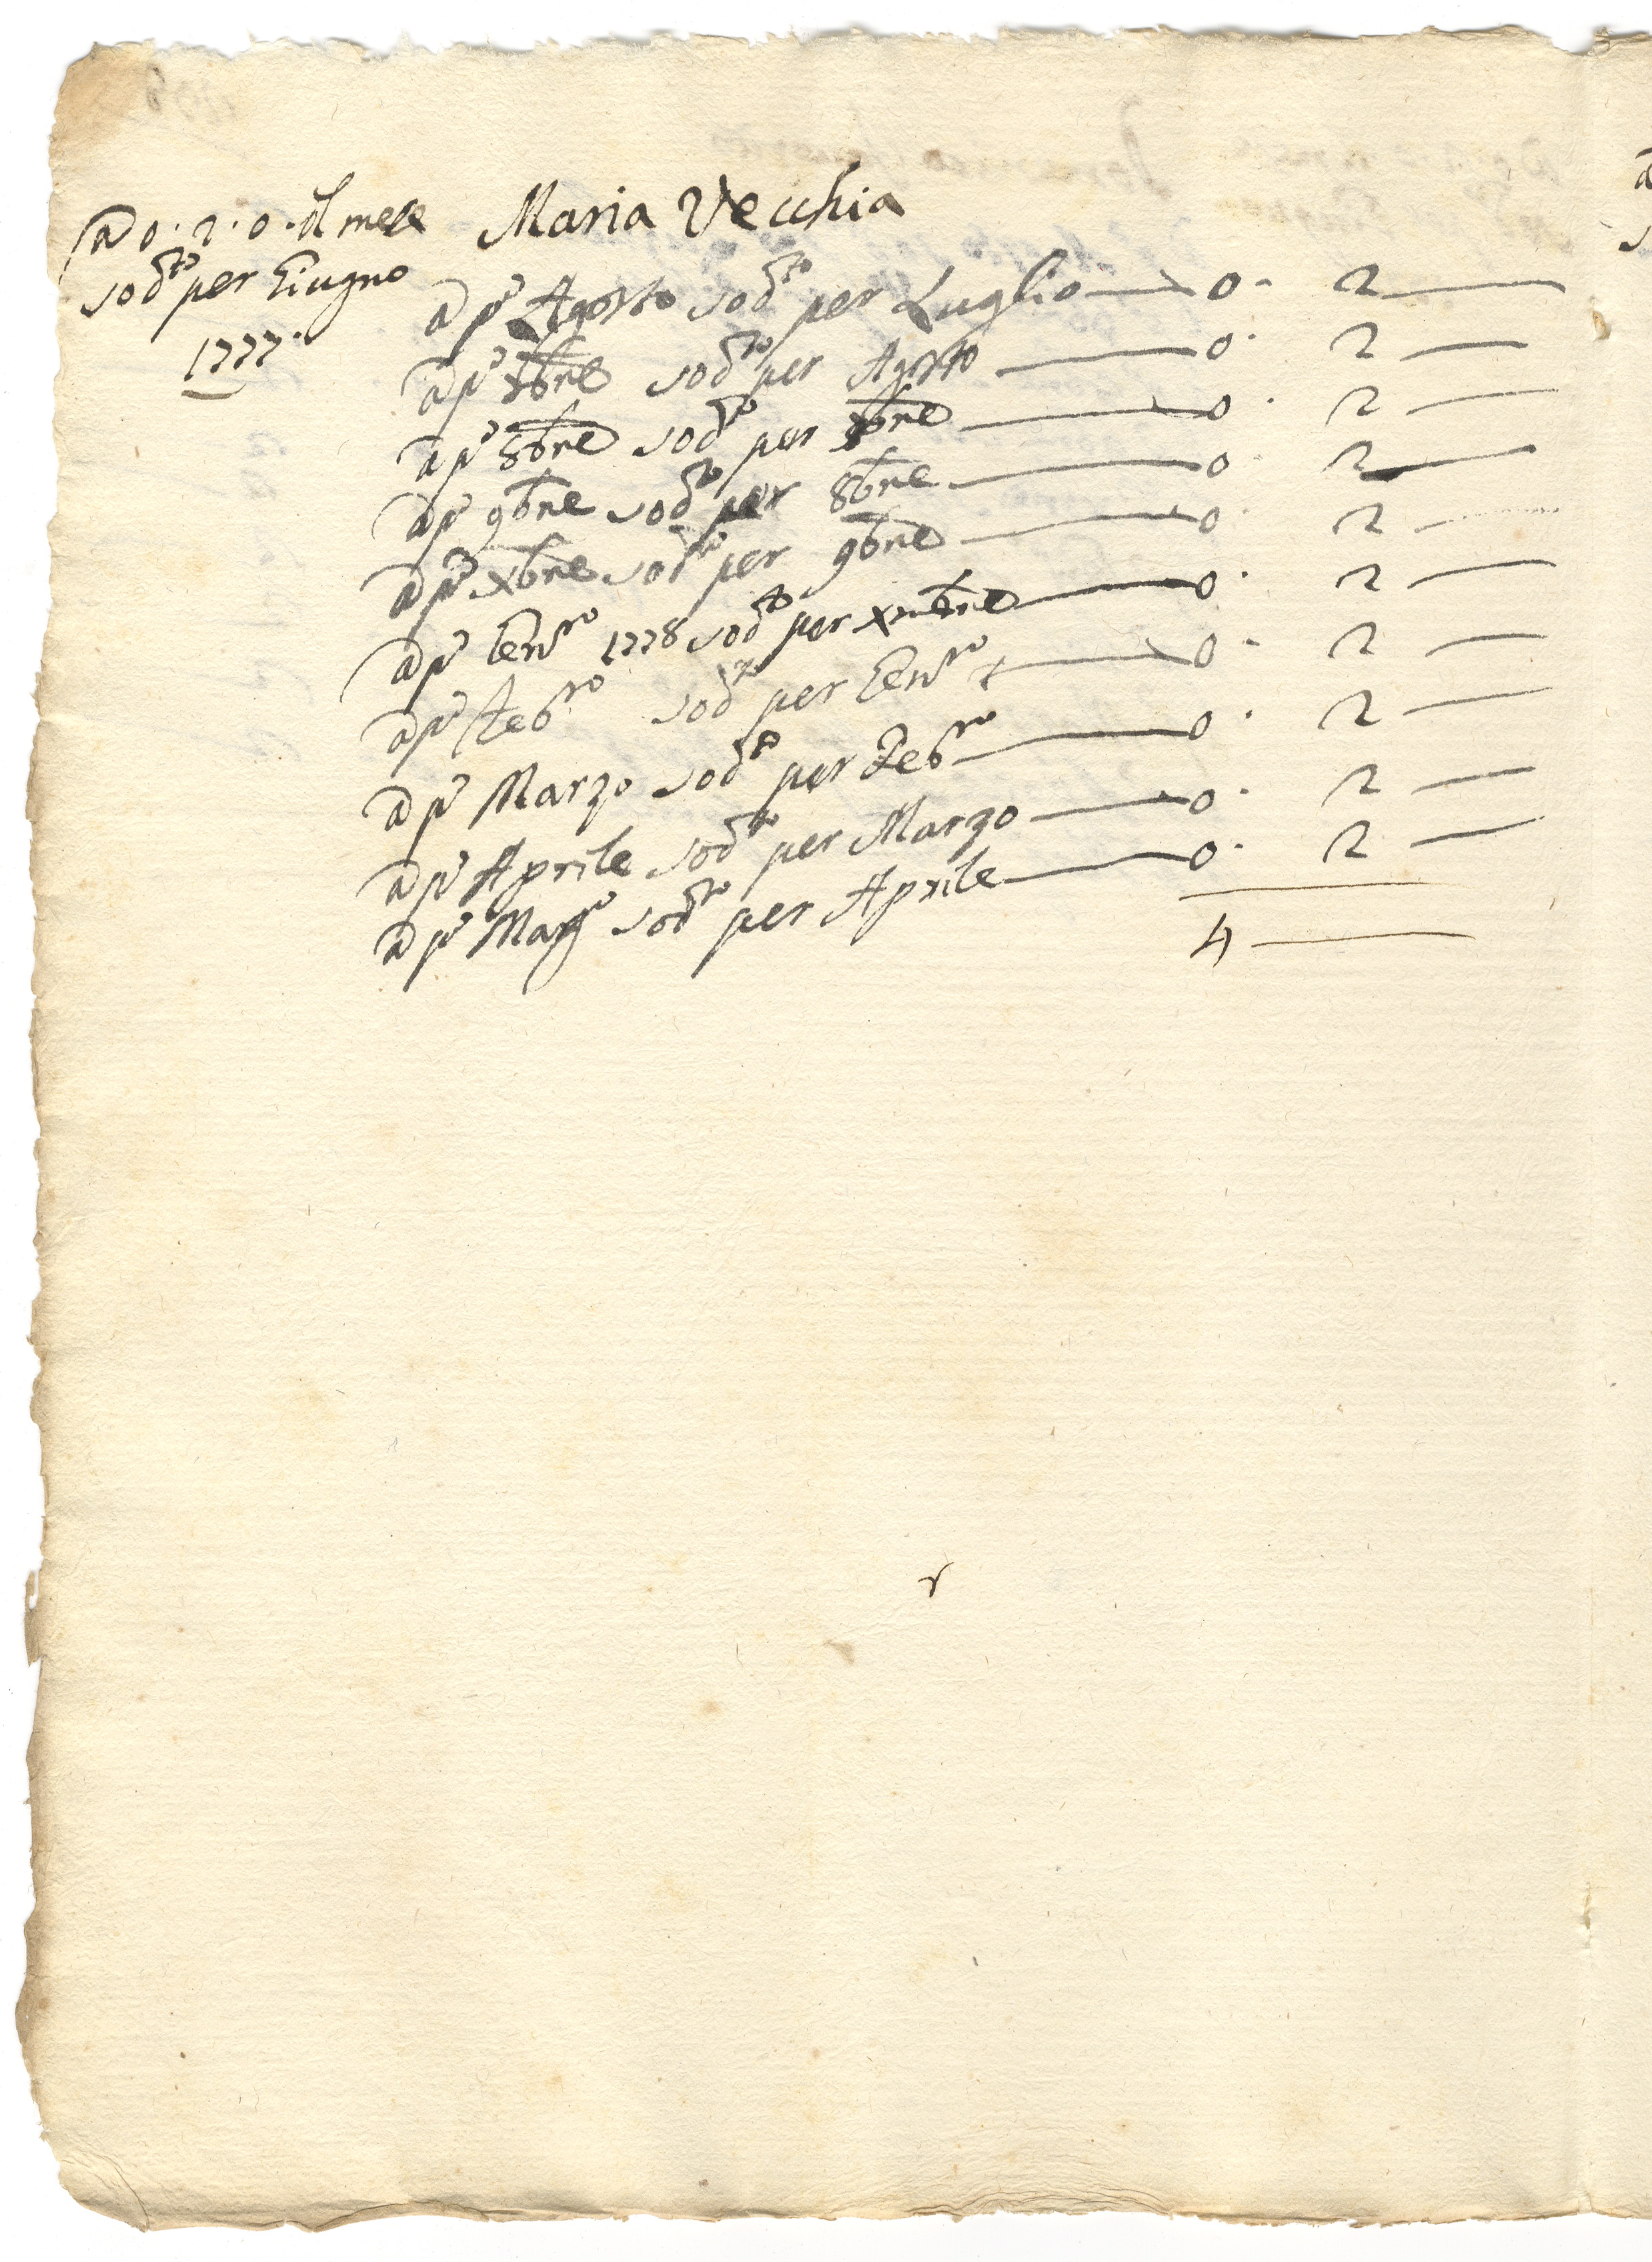 a 0·2·0·dl mese
sodto per Giugno
1777·
Maria Vecchia
a pº Agosto sodto per Luglio — 0· 2 —
a pº 7bre sodto per Agosto — 0· 2 —
a pº 8bre sodto per 7bre — 0· 2 —
a pº 9bre sodto per 8bre — 0· 2 —
a pº xbre sodto per 9bre — 0· 2 —
a pº Genro 1778 sodto per xmbre — 0· 2 —
a pº Febro sodto per Genro — 0· 2 —
a pº Marzo sodto per Febro — 0· 2 —
a pº Aprile sodto per Marzo — 0· 2 —
a pº Maggo sodto per Aprile — 0· 2 —
4 —